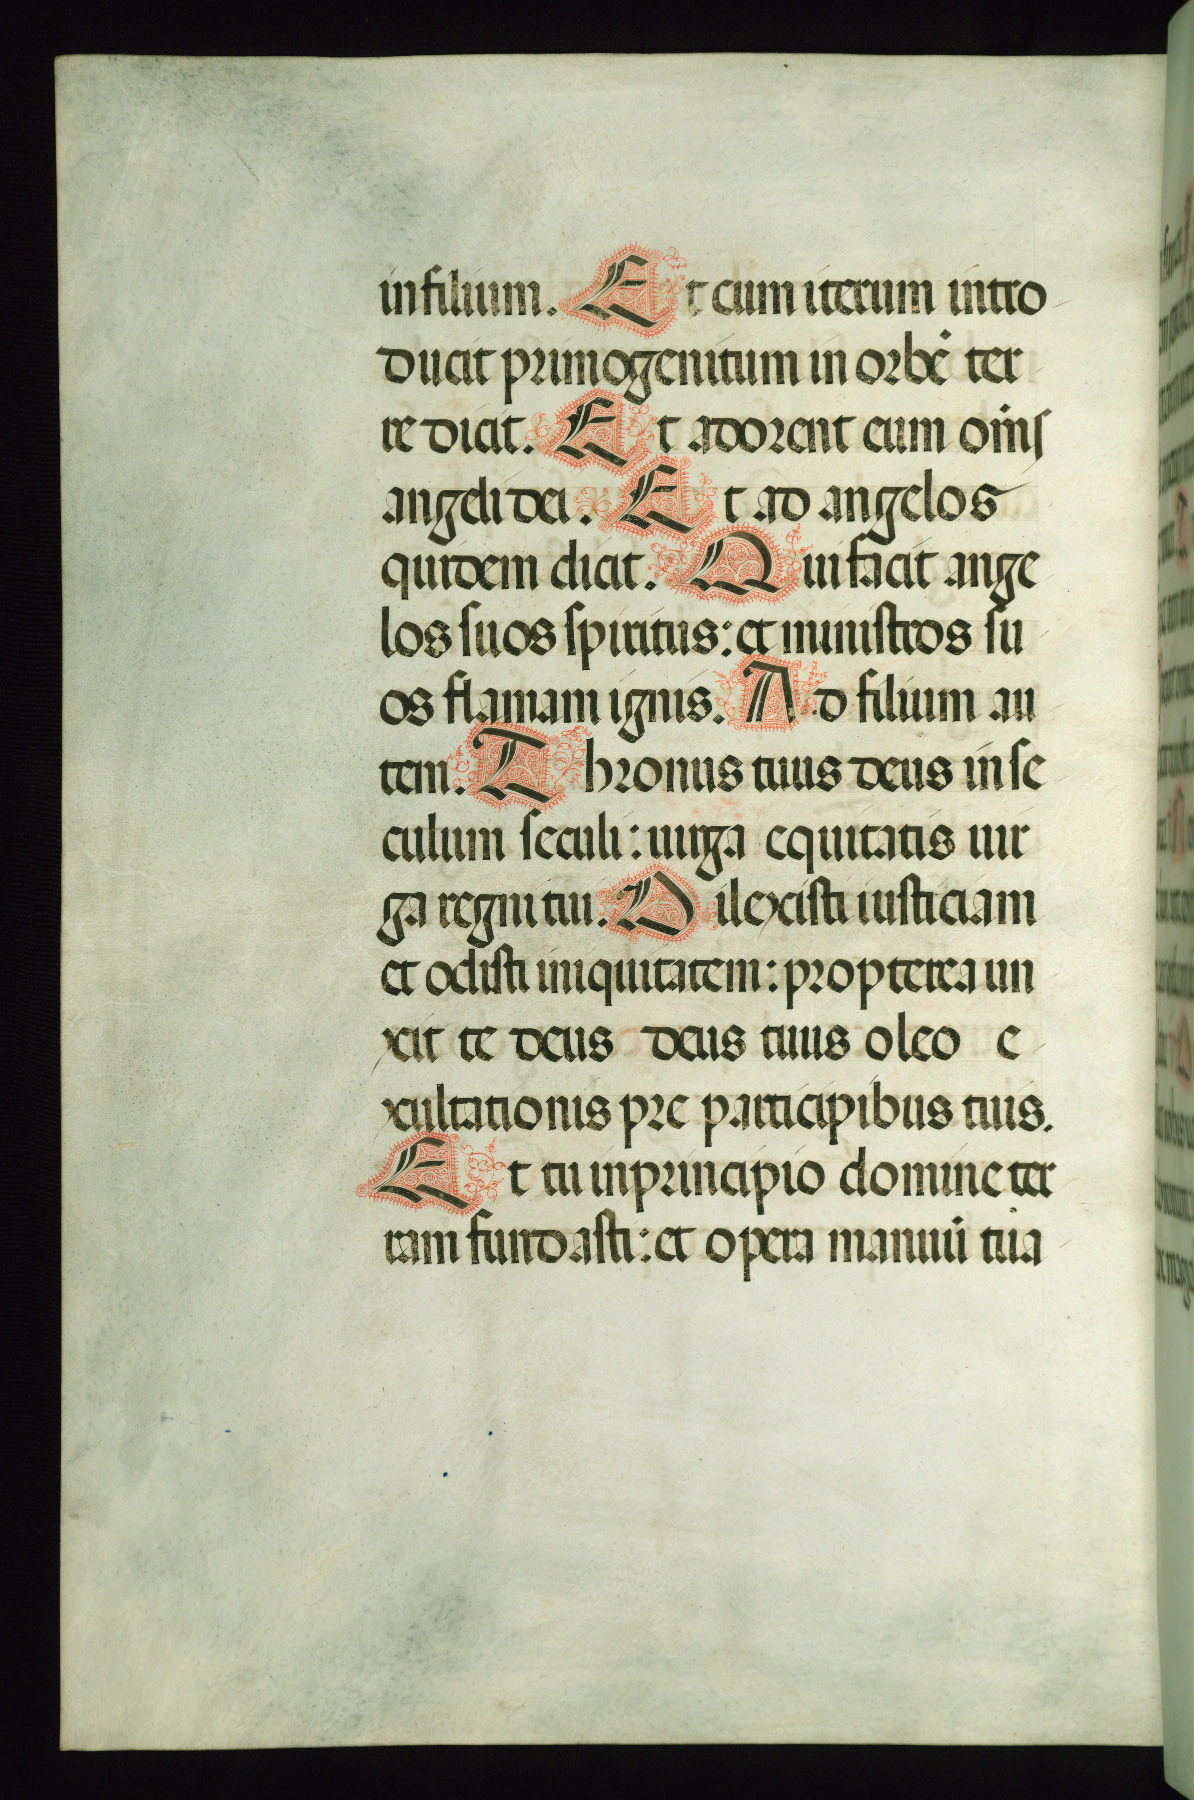 in filium. Et cum iterum intro
ducit primogenitum in orbē ter
re dicit. Et adorent eum om̄s
angeli dei. Et ad angelos
quidem dicit. Qui facit ange
los suos spiritus: et ministros su
os flamam ignis. Ad filium au
tem. Thronus tuus deus in se
culum seculi: uirga equitatis uir
ga regni tui. Dilexisti iusticiam
et odisti iniquitatem: propterea un
xit te deus deus tuus oleo e
xultationis pre participibus tuis.
Et tu in principio domine ter
ram fundasti: et opera manuū tua